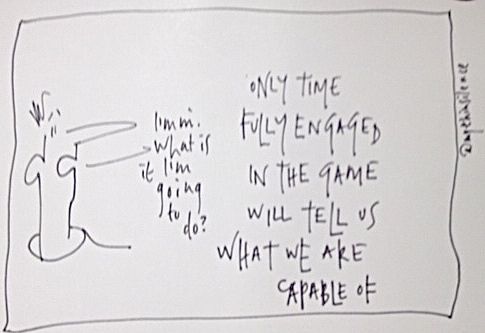 Umm.
What is
it I'm
going
to
do?
ONLY TIME
FULLY ENGAGED
IN THE GAME
WILL TELL US
WHAT WE ARE
CAPABLE OF
@mythinsilence